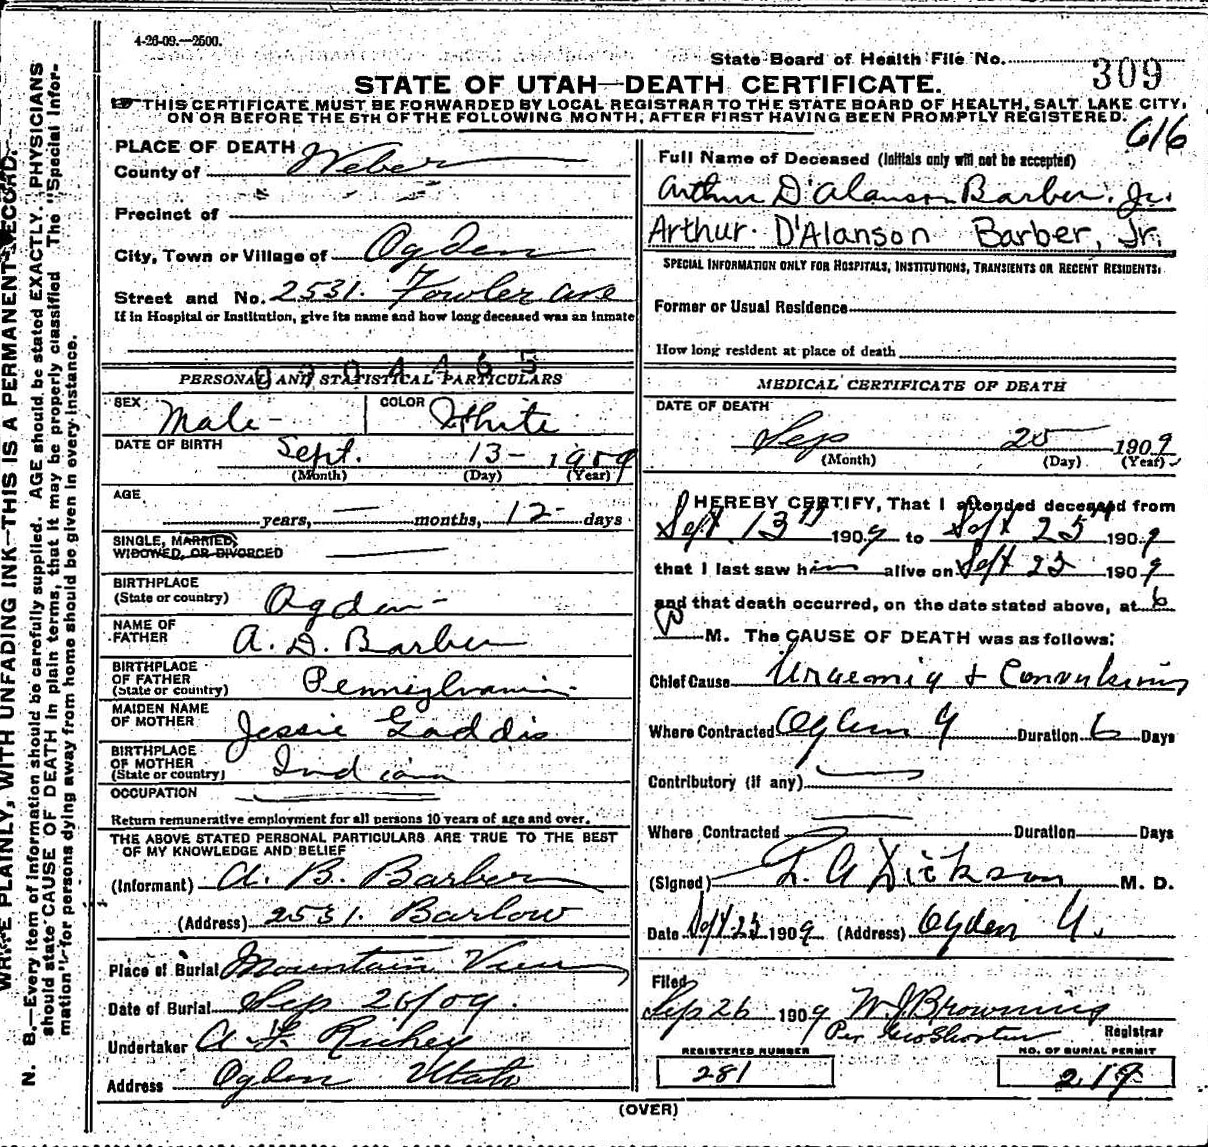 4-26-09.—2500.
State Board of Health File No. 309
STATE OF UTAH—DEATH CERTIFICATE.
THIS CERTIFICATE MUST BE FORWARDED BY LOCAL REGISTRAR TO THE STATE BOARD OF HEALTH, SALT LAKE CITY,
ON OR BEFORE THE 5TH OF THE FOLLOWING MONTH, AFTER FIRST HAVING BEEN PROMPTLY REGISTERED.
616
WRITE PLAINLY, WITH UNFADING INK—THIS IS A PERMANENT RECORD.
N. B.—Every item of information should be carefully supplied. AGE should be stated EXACTLY. PHYSICIANS
should state CAUSE OF DEATH in plain terms, that it may be properly classified. The "Special Infor-
mation" for persons dying away from home should be given in every instance.
PLACE OF DEATH
County of Weber
Precinct of
City, Town or Village of Ogden
Street and No. 2531. Fowler ave
If in Hospital or Institution, give its name and how long deceased was an inmate
PERSONAL AND STATISTICAL PARTICULARS
SEX Male- COLOR White
DATE OF BIRTH Sept. 13- 1909
(Month) (Day) (Year)
AGE
years, — months, 12- days
SINGLE, MARRIED,
WIDOWED, OR DIVORCED
BIRTHPLACE
(State or country) Ogden-
NAME OF
FATHER A. D. Barber
BIRTHPLACE
OF FATHER
(State or country) Pennsylvania
MAIDEN NAME
OF MOTHER Jessie Gaddis
BIRTHPLACE
OF MOTHER
(State or country) Indiana
OCCUPATION
Return remunerative employment for all persons 10 years of age and over.
THE ABOVE STATED PERSONAL PARTICULARS ARE TRUE TO THE BEST
OF MY KNOWLEDGE AND BELIEF
(Informant) A. B. Barber
(Address) 2531. Barlow
Place of Burial Mountain View
Date of Burial Sep 26/09.
Undertaker A. F. Richey
Address Ogden Utah
Full Name of Deceased (Initials only will not be accepted)
Arthur D'Alanson Barber. Jr.
Arthur D'Alanson Barber, Jr.
SPECIAL INFORMATION ONLY FOR HOSPITALS, INSTITUTIONS, TRANSIENTS OR RECENT RESIDENTS:
Former or Usual Residence
How long resident at place of death
MEDICAL CERTIFICATE OF DEATH
DATE OF DEATH
Sep 25 1909
(Month) (Day) (Year)
I HEREBY CERTIFY, That I attended deceased from
Sept. 13" 1909 to Sept 25" 1909
that I last saw him alive on Sept 25 1909
and that death occurred, on the date stated above, at 6
P M. The CAUSE OF DEATH was as follows:
Chief Cause Uraemia & Convulsions
Where Contracted Ogden Duration 6 Days
Contributory (if any)
Where Contracted Duration Days
(Signed) Dickson M. D.
Date Sept 25 1909 (Address) Ogden U.
Filed
Sep 26 1909 W J Browning
Per Geo Shorten Registrar
REGISTERED NUMBER NO. OF BURIAL PERMIT
281 219
(OVER)